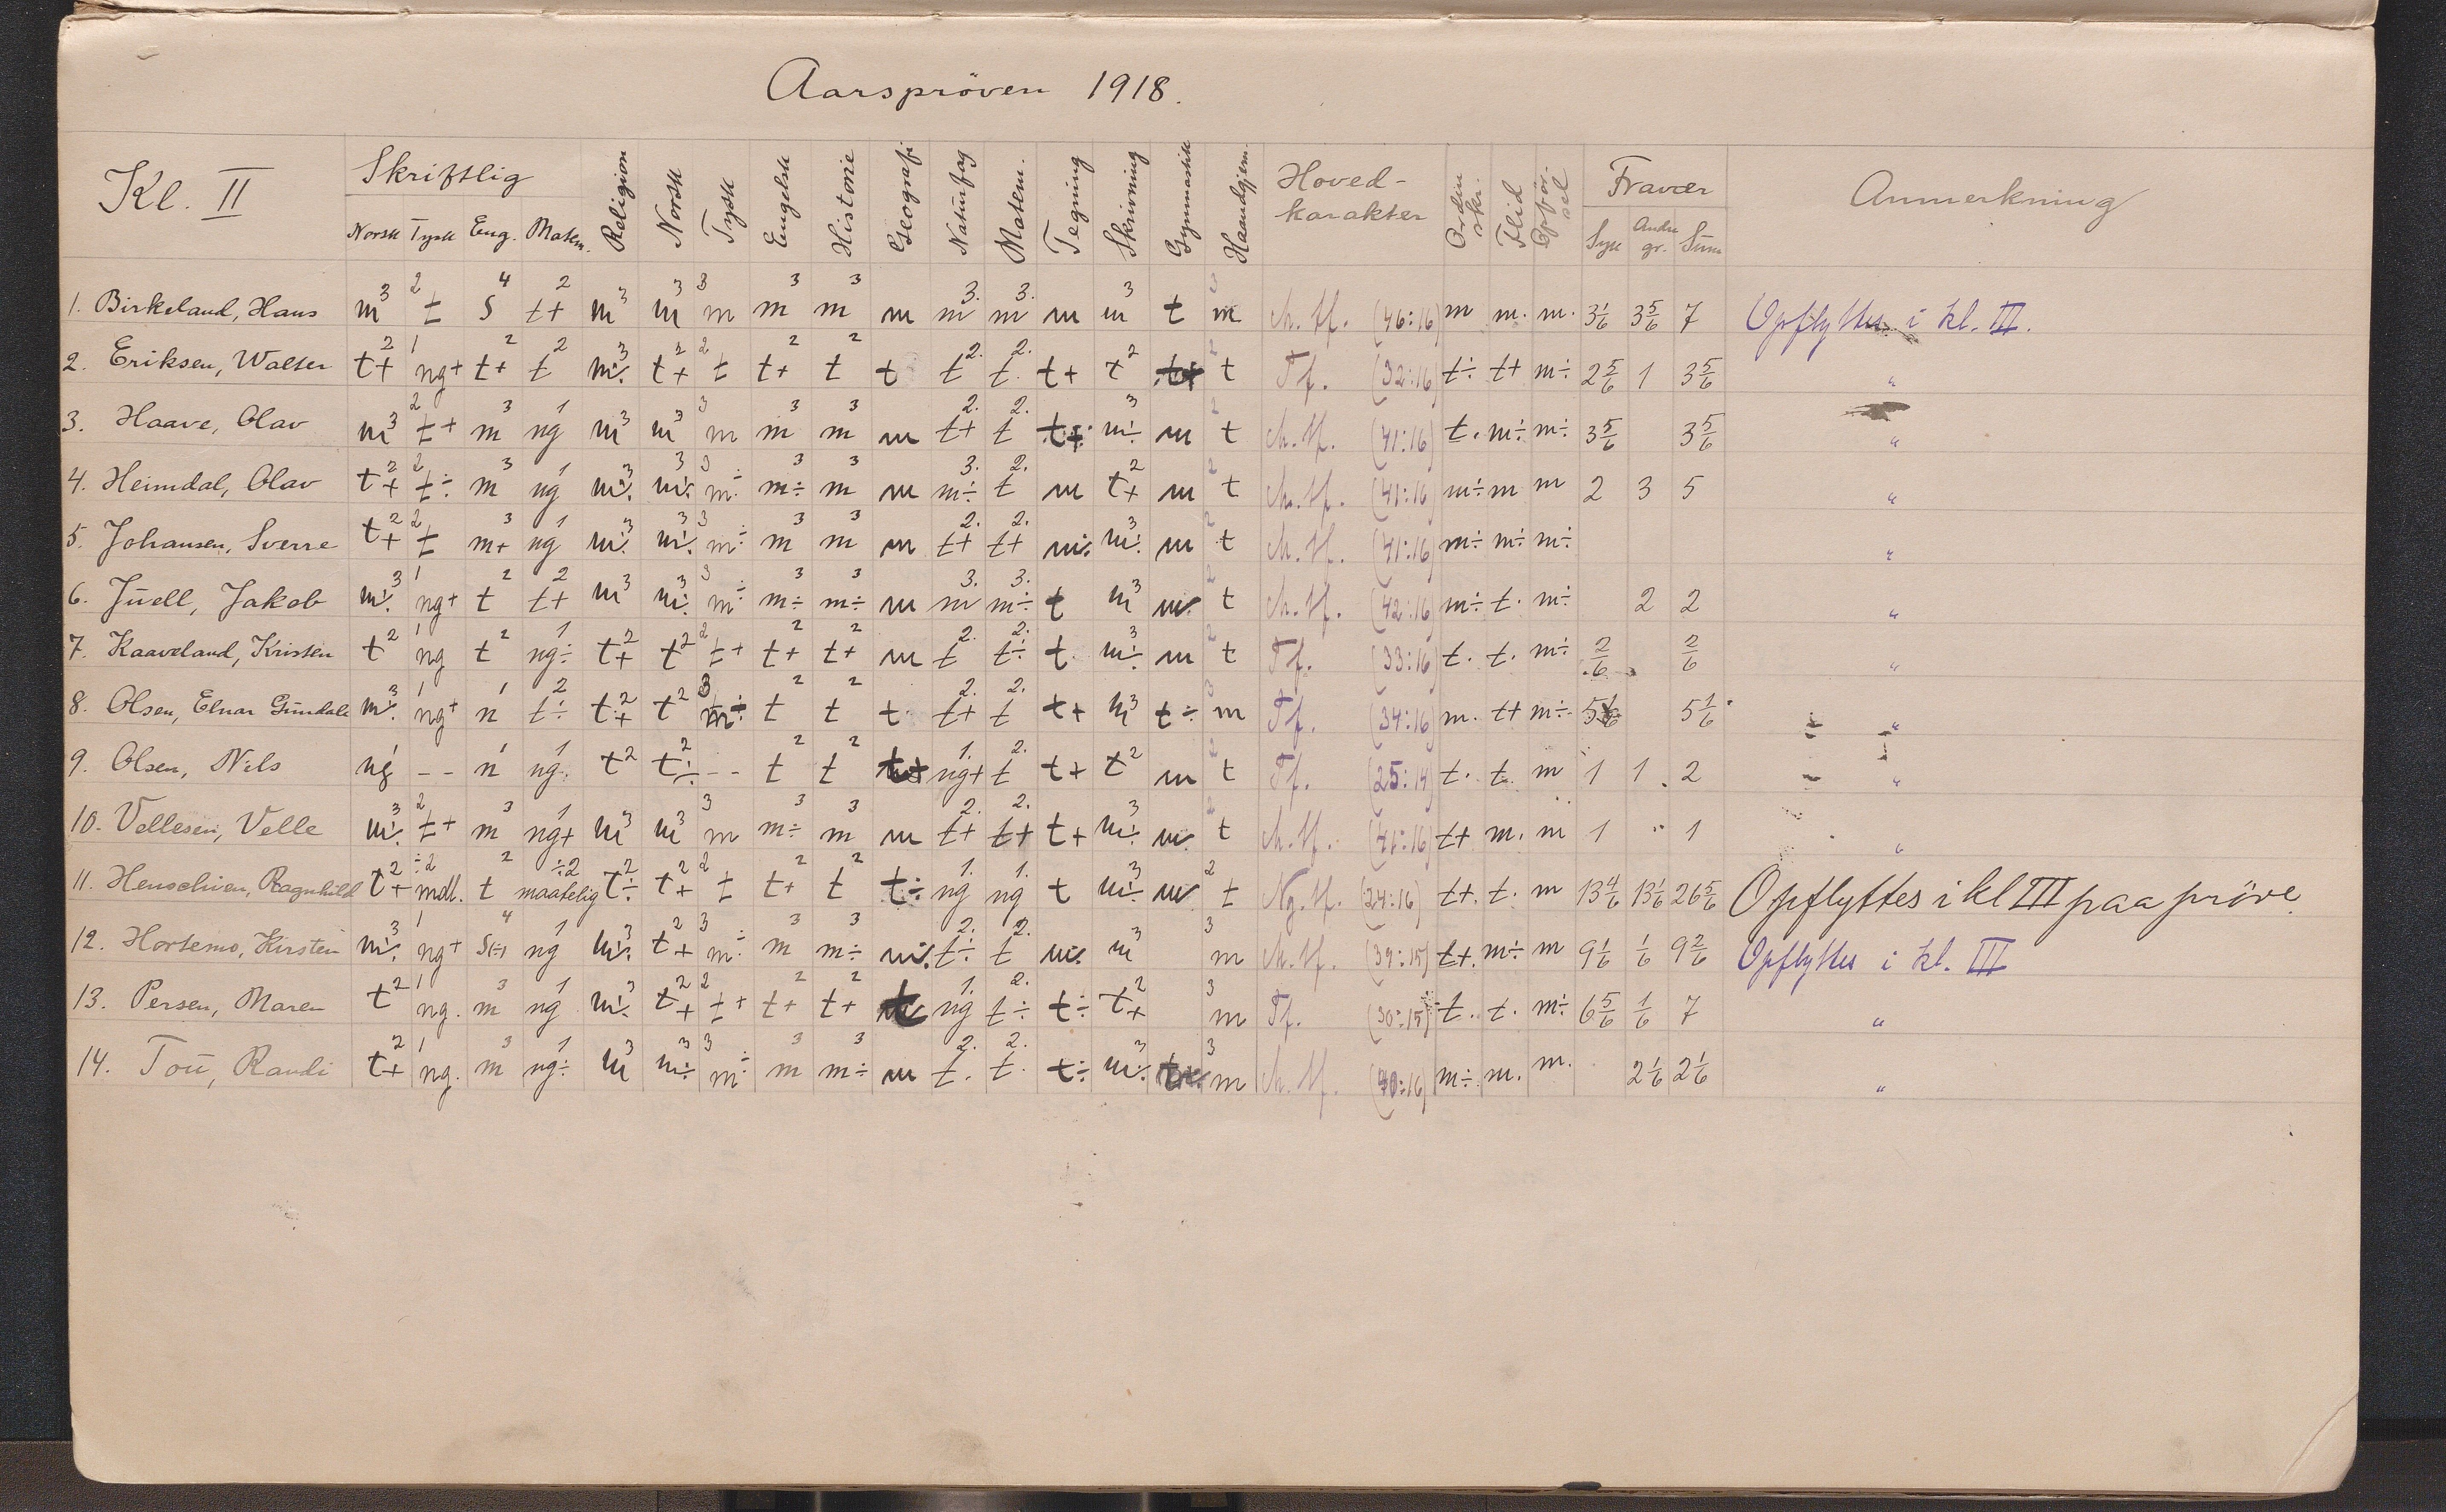 Aarspröven 1918.
Kl. II Skriftlig Religion Norsk Tysk Engelsk Historie Geografi Naturfag Matem. Tegning Skrivning Gymnastikk Haandgjern. Hoved-karakter Orden skr. Flid Opför-sel Fravær Anmerkning
Norsk Tysk Eng. Matem. Syk Andre gr. Sum
1. Birkeland, Hans m3 t2 S4 t+2 m3 m3 m3 m3 m3 m m3. m3. m m3 t m M.tf. (46:16) m m. m. 3 1/6 3 5/6 7 Opflyttes i kl. III.
2. Eriksen, Walter t+2 ng+1 t+2 t2 m÷3 t+2 t2 t+2 t2 t t2. t2. t+ t2 t 2 Tf. (32:16) t÷ t+ m÷ 2 5/6 1 3 5/6 "
3. Haave, Olav m3 t+2 m3 ng1 m3 m3 m3 m3 m3 m t+2. t2. t+ m÷3 m t2 M.tf. (41:16) t. m÷ m÷ 3 5/6 3 5/6 "
4. Heimdal, Olav t+2 t÷2 m3 ng1 m÷3 m÷3 m÷3 m÷3 m3 m m÷3. t2. m t+2 m t2 M.tf. (41:16) m÷ m m 2 3 5 "
5. Johansen, Sverre t+2 t2 m+3 ng1 m÷3 m÷3 m÷3 m3 m3 m t+2. t+2. m÷ m÷3 m t2 M.tf. (41:16) m÷ m÷ m÷ "
6. Juell, Jakob m÷3 ng+1 t2 t+2 m3 m÷3 m÷3 m÷3 m÷3 m m3. m÷3. t m3 m÷ t2 M.tf. (42:16) m÷ t. m÷ 2 2 "
7. Kaaveland, Kristen t2 ng1 t2 ng÷1 t+2 t2 t+2 t+2 t+2 m t2. t÷2. t m÷3 m t2 Tf. (33:16) t. t. m÷ 2/6 2/6 "
8. Olsen, Elnar Gundale m÷3 ng+1 n1 t÷2 t+2 t2 m÷3 t2 t2 t t+2. t2. t+ m3 t÷ m3 Tf. (34:16) m. t+ m÷ 5 1/6 5 1/6 "
9. Olsen, Nils ng1 -- n1 ng1 t2 t÷2 -- t2 t2 t+ ng+1. t2. t+ t2 m t2 Tf. (25:14) t. t. m 1 1 2 "
10. Vellesen, Velle m÷3 t+2 m3 ng+1 m3 m3 m3 m÷3 m3 m t+2. t+2. t+ m÷3 m÷ t2 M.tf. (41:16) t+ m. m 1 1 "
11. Henschien, Ragnhild t+2 mdl.÷2 t2 maatelig÷2 t÷2 t+2 t2 t+2 t2 t÷ ng1. ng1. t m÷3 m t2 Ng.tf. (24:16) t+. t. m 13 4/6 13 1/6 26 5/6 Opflyttes i kl III paa pröve.
12. Hortemo, Kirsten m÷3 ng+1 S(÷)4 ng1 m÷3 t+2 m÷3 m3 m÷3 m÷ t÷2. t2. m÷ m3 m3 M.tf. (39:15) t+. m÷ m 9 1/6 1/6 9 2/6 Opflyttes i kl. III
13. Persen, Maren t2 ng.1 m3 ng1 m÷3 t+2 t+2 t+2 t+2 t ng1. t÷2. t÷ t+2 m3 Tf. (30:15) t. t. m÷ 6 5/6 1/6 7 "
14. Tou, Randi t+2 ng.1 m3 ng÷1 m3 m÷3 m÷3 m3 m÷3 m t.2. t.2. t÷ m÷3 m3 M.tf. (40:16) m÷ m. m. 2 1/6 2 1/6 "